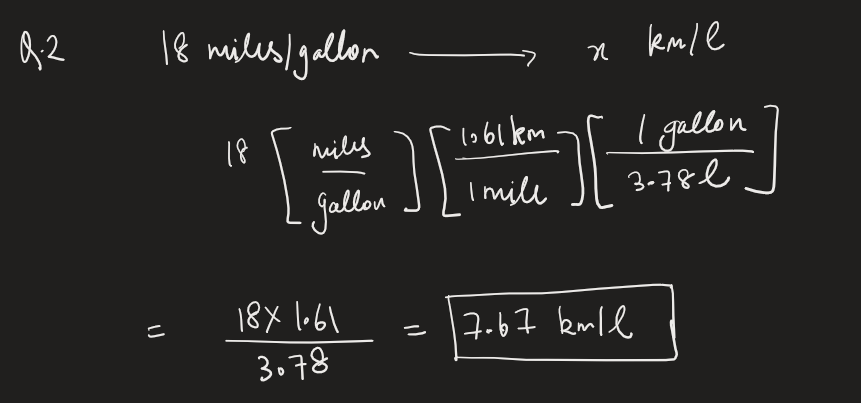 Q.2 18 miles/gallon ⟶ x km/l
18 [miles/gallon] [1.61 km/1 mile] [1 gallon/3.78 l]
= 18 × 1.61/3.78 = 7.67 km/l